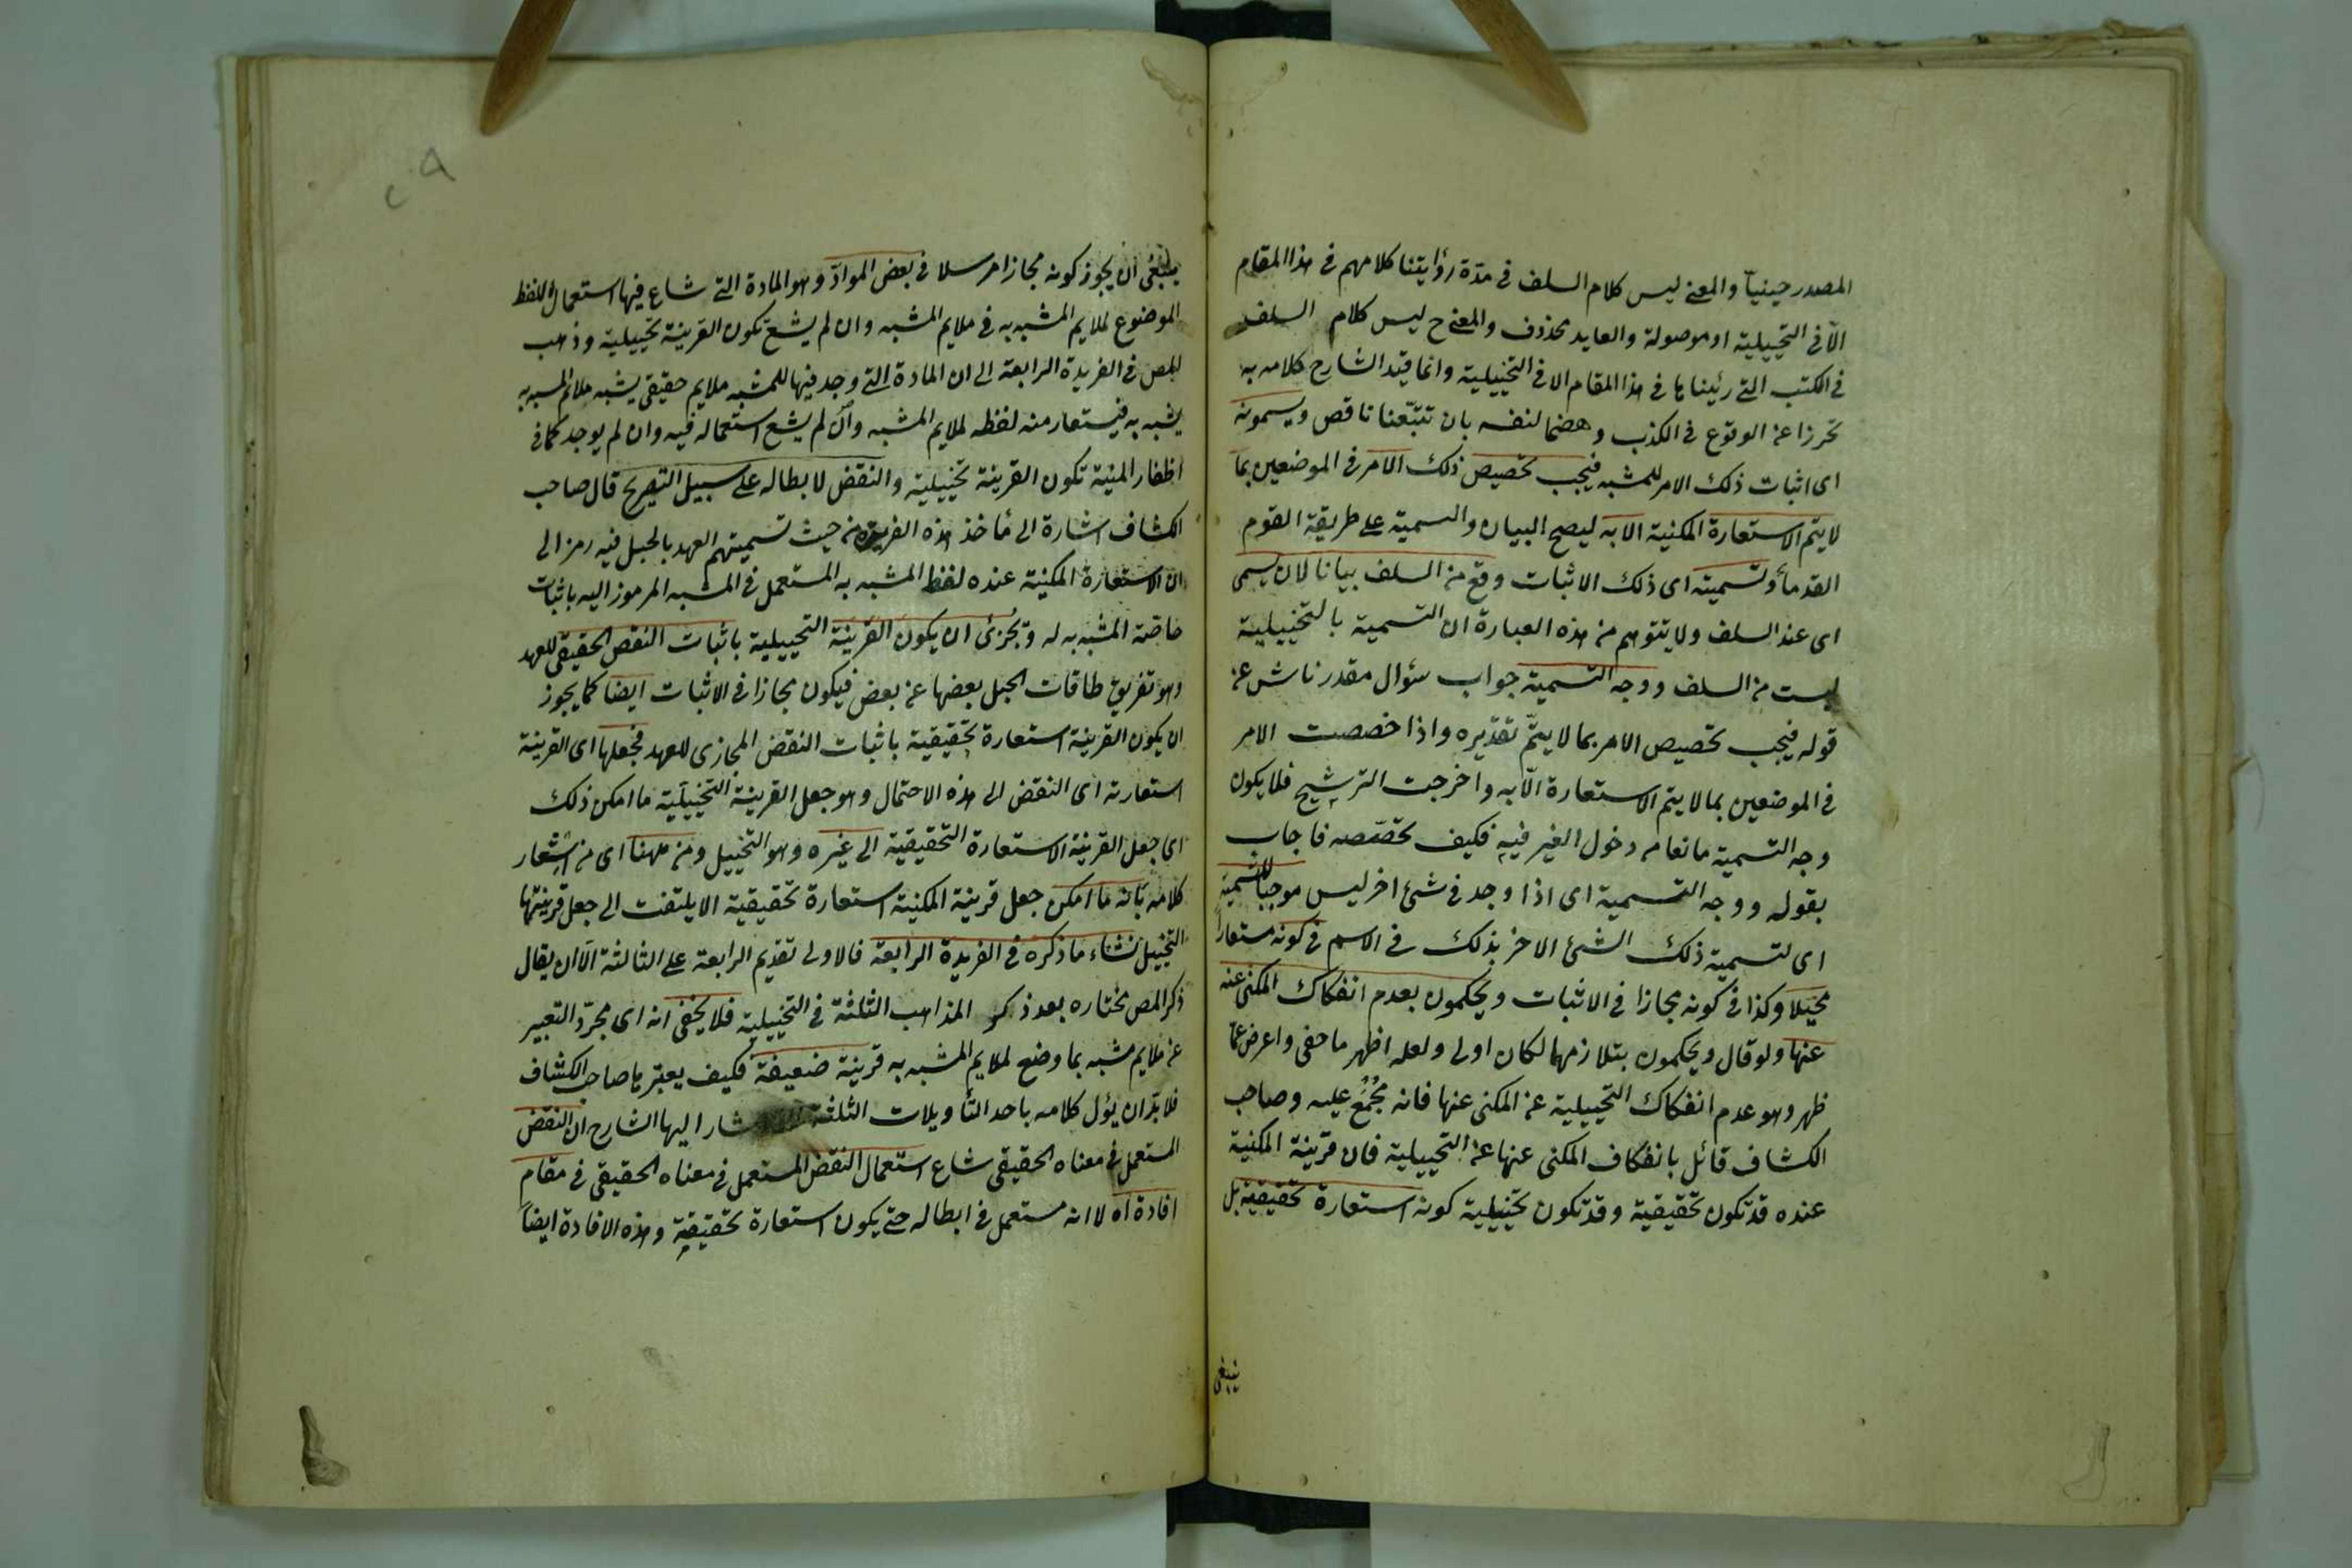 المصدر حينيا والمعنى ليس كلام السلف فى مدة رؤايتنا كلامهم فى هذا المقام
الّا فى التخييلية او موصولة والعايد محذوف والمعنى ح ليس كلام السلف
فى الكتب التى رئيناها فى هذا المقام الا فى التخييلية وانما قيّد الشارح كلامه به
تحرزا عن الوقوع فى الكذب وهضما لنفسه بان تتبّعنا ناقص ويسمونه
اى اثبات ذلك الامر للمشبه فيجب تخصيص ذلك الامر فى الموضعين بما
لا يتم الاستعارة المكنية الا به ليصح البيان والتسمية على طريقة القوم
القدماء وتسميته اى ذلك الاثبات وقع من السلف بيانا لان يسمى
اى عند السلف ولا يتوهم من هذه العبارة ان التسمية بالتخييلية
ليست من السلف ووجه التسمية جواب سؤال مقدر ناش عن
قوله فيجب تخصيص الامر بما لا يتمّ تقديره واذا خصصت الامر
فى الموضعين بما لا يتم الاستعارة الّا به واخرجت الترشيح فلا يكون
وجه التسمية مانعا من دخول الغير فيه فكيف تخصّصه فاجاب
بقوله ووجه التسمية اى اذا وجد فى شئ اخر ليس موجبا للتسمية
اى لتسمية ذلك الشئ الاخر بذلك فى الاسم فى كونه مستعارا
مخيّلا وكذا فى كونه مجازا فى الاثبات ويحكمون بعدم انفكاك المكنى عنه
عنها ولو قال ويحكمون بتلازمهما لكان اولى ولعله اظهر ما خفى واعرض عمّا
ظهر وهو عدم انفكاك التخييلية عن المكنى عنها فانه مُجْمَع عليه وصاحب
الكشاف قائل بانفكاف المكنى عنها عن التخييلية فان قرينة المكنية
عنده قد تكون تحقيقية وقد تكون تخييلية كونه استعارة تحقيقية بل
ينبغى
ينبغى ان يجوز كونه مجازا مرسلا فى بعض الموادّ وهو المادة التى شاع فيها استعمال اللفظ
الموضوع لملايم المشبه به فى ملايم المشبه وان لم يشع تكون القرينة تخييلية وذهب
المص فى الفريدة الرابعة الى ان المادة التى وجد فيها للمشبه ملايم حقيقى يشبه ملائم المشبه به
يشبه به فيستعار منه لفظه لملايم المشبه وان لم يشع استعماله فيه وان لم يوجد كما فى
اظفار المنية تكون القرينة تخييلية والنقض لابطاله على سبيل التصريح قال صاحب
الكشاف اشارة الى مأخذ هذه الفريدة من حيث تسميتهم العهد بالحبل فيه رمز الى
ان الاستعارة المكنية عنده لفظ المشبه به المستعمل فى المشبه المرموز اليه باثبات
خاصّة المشبه به له وتجزئ ان يكون القرينة التخييلية باثبات النقص الحقيقى للعهد
وهو تفريق طاقات الحبل بعضها عن بعض فيكون مجازا فى الاثبات ايضا كما يجوز
ان يكون القرينة استعارة تحقيقية باثبات النقض المجازى للعهد فجعلها اى القرينة
استعارته اى النقض الى هذه الاحتمال وهو جعل القرينة التخييلية ما امكن ذلك
اى جعل القرينة الاستعارة التحقيقية الى غيره وهو التخييل ومن ههنا اى من اشعار
كلامه بانه ما امكن جعل قرينة المكنية استعارة تحقيقية لا يلتفت الى جعل قرينتها
التخييل نشاء ما ذكره فى الفريدة الرابعة فالاولى تقديم الرابعة على الثالثة الّا ان يقال
ذكر المص مختاره بعد ذكر المذاهب الثلثة فى التخييلية فلا يخفى انه اى مجرّد التعبير
عن ملايم مشبه بما وضع لملايم المشبه به قرينة ضعيفة فكيف يعتبرها صاحب الكشاف
فلا بدّ ان يؤل كلامه باحد التأويلات الثلثة اشار اليها الشارح ان النقض
المستعمل فى معناه الحقيقى شاع استعمال النقض المستعمل فى معناه الحقيقى فى مقام
افادة اه لا انه مستعمل فى ابطاله حتى يكون استعارة تحقيقية وهذه الافادة ايضا